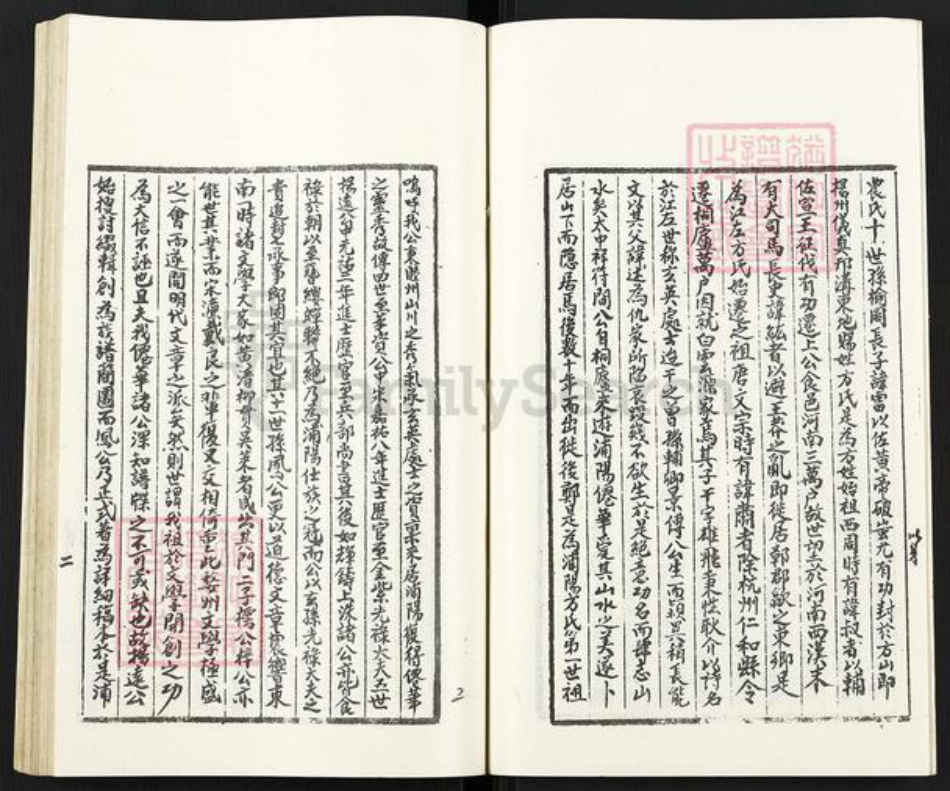 農氏十一世孫榆岡長子諱雷以佐黃帝破蚩尤有功封於方山即
揚州儀真邢溝東地賜姓方氏是為方姓始祖西周時有諱叔者以輔
佐宣王征伐有功遷上公食邑河南三萬戶故世望於河南西漢末
有大司馬長史諱紘者以避王莽之亂即徙居郭郡歙之東鄉是
為江左方氏始遷之祖唐文宗時有諱肅者除杭州仁和縣令
遷桐廬萬戶因就白雲源家焉其子干字雄飛秉性耿介以詩名
於江左世稱玄英處士迨干之曾孫輔卿景傅公生而穎異稍長能
文以其父諱述為仇家所隱哀毀幾不欲生於是絕意功名而肆志山
水矣太中祥符間公自桐廬來遊浦陽僊華愛其山水之美遂卜
居山下而隱居焉後數十年而出徙後鄭是為浦陽方氏第一世祖
嗚呼我公東浙州山川之秀氣承玄英處士之質稟來居浦陽復得僊華
之靈秀故傳四世至資公中宋嘉祐八年進士歷官至金紫光祿大夫五世
揚遠公中元祐二年進士歷官至兵部尚書其後如輝鑄上深諸公亦皆食
祿於朝以至簪纓蟬聯不絕乃為浦陽仕族之冠而公以玄孫光祿大夫之
貴追封七承事郎固其宜也其十一世孫鳳公更以道德文章震響東
南一時諸文學大家如黃溍柳貫吳萊者咸出其門二子樗公梓公亦
能世其業而宋濂戴良之輩復又交相倚重此婺州文學極盛
之一會而遂開明代文章之派矣然則世謂我祖於文學開創之功
為大信不誣也且夫我僊華諸公深知譜牒之不可或缺也故揚遠公
始搜討綴輯創為族譜簡圖而鳳公乃正式著為詳細稿本於是浦
二
2